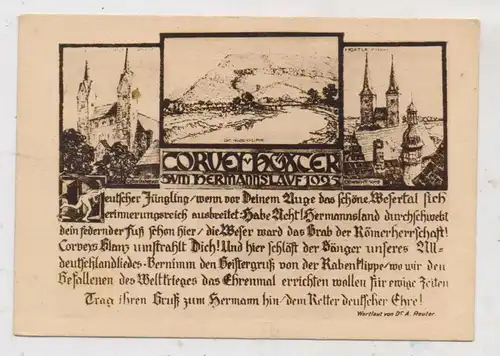 HÖXTER
CORVEY-HÖXTER
ZUM HERMANNSLAUF 1925
Deutscher Jüngling/wenn vor Deinem Auge das schöne Wesertal sich
erinnerungsreich ausbreitet-Habe Acht! Hermannsland durchschwebt
dein federnder Fuß schon hier/die Weser ward das Grab der Römerherrschaft!
Corveys Glanz umstrahlt Dich! Und hier schlöft der Sänger unseres All-
deutschlandliedes-Vernimm den Geistergruß von der Rabenklippe/wo wir den
Gefallenen des Weltkrieges das Ehrenmal errichten wollen für ewige Zeiten
Trag ihren Gruß zum Hermann hin/dem Retter deutscher Ehre!
Wortlaut von Dr A. Reuter.